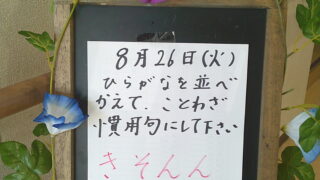 8月26日(火)
ひらがなを並べ
かえて、ことわざ
慣用句にして下さい
きそんん